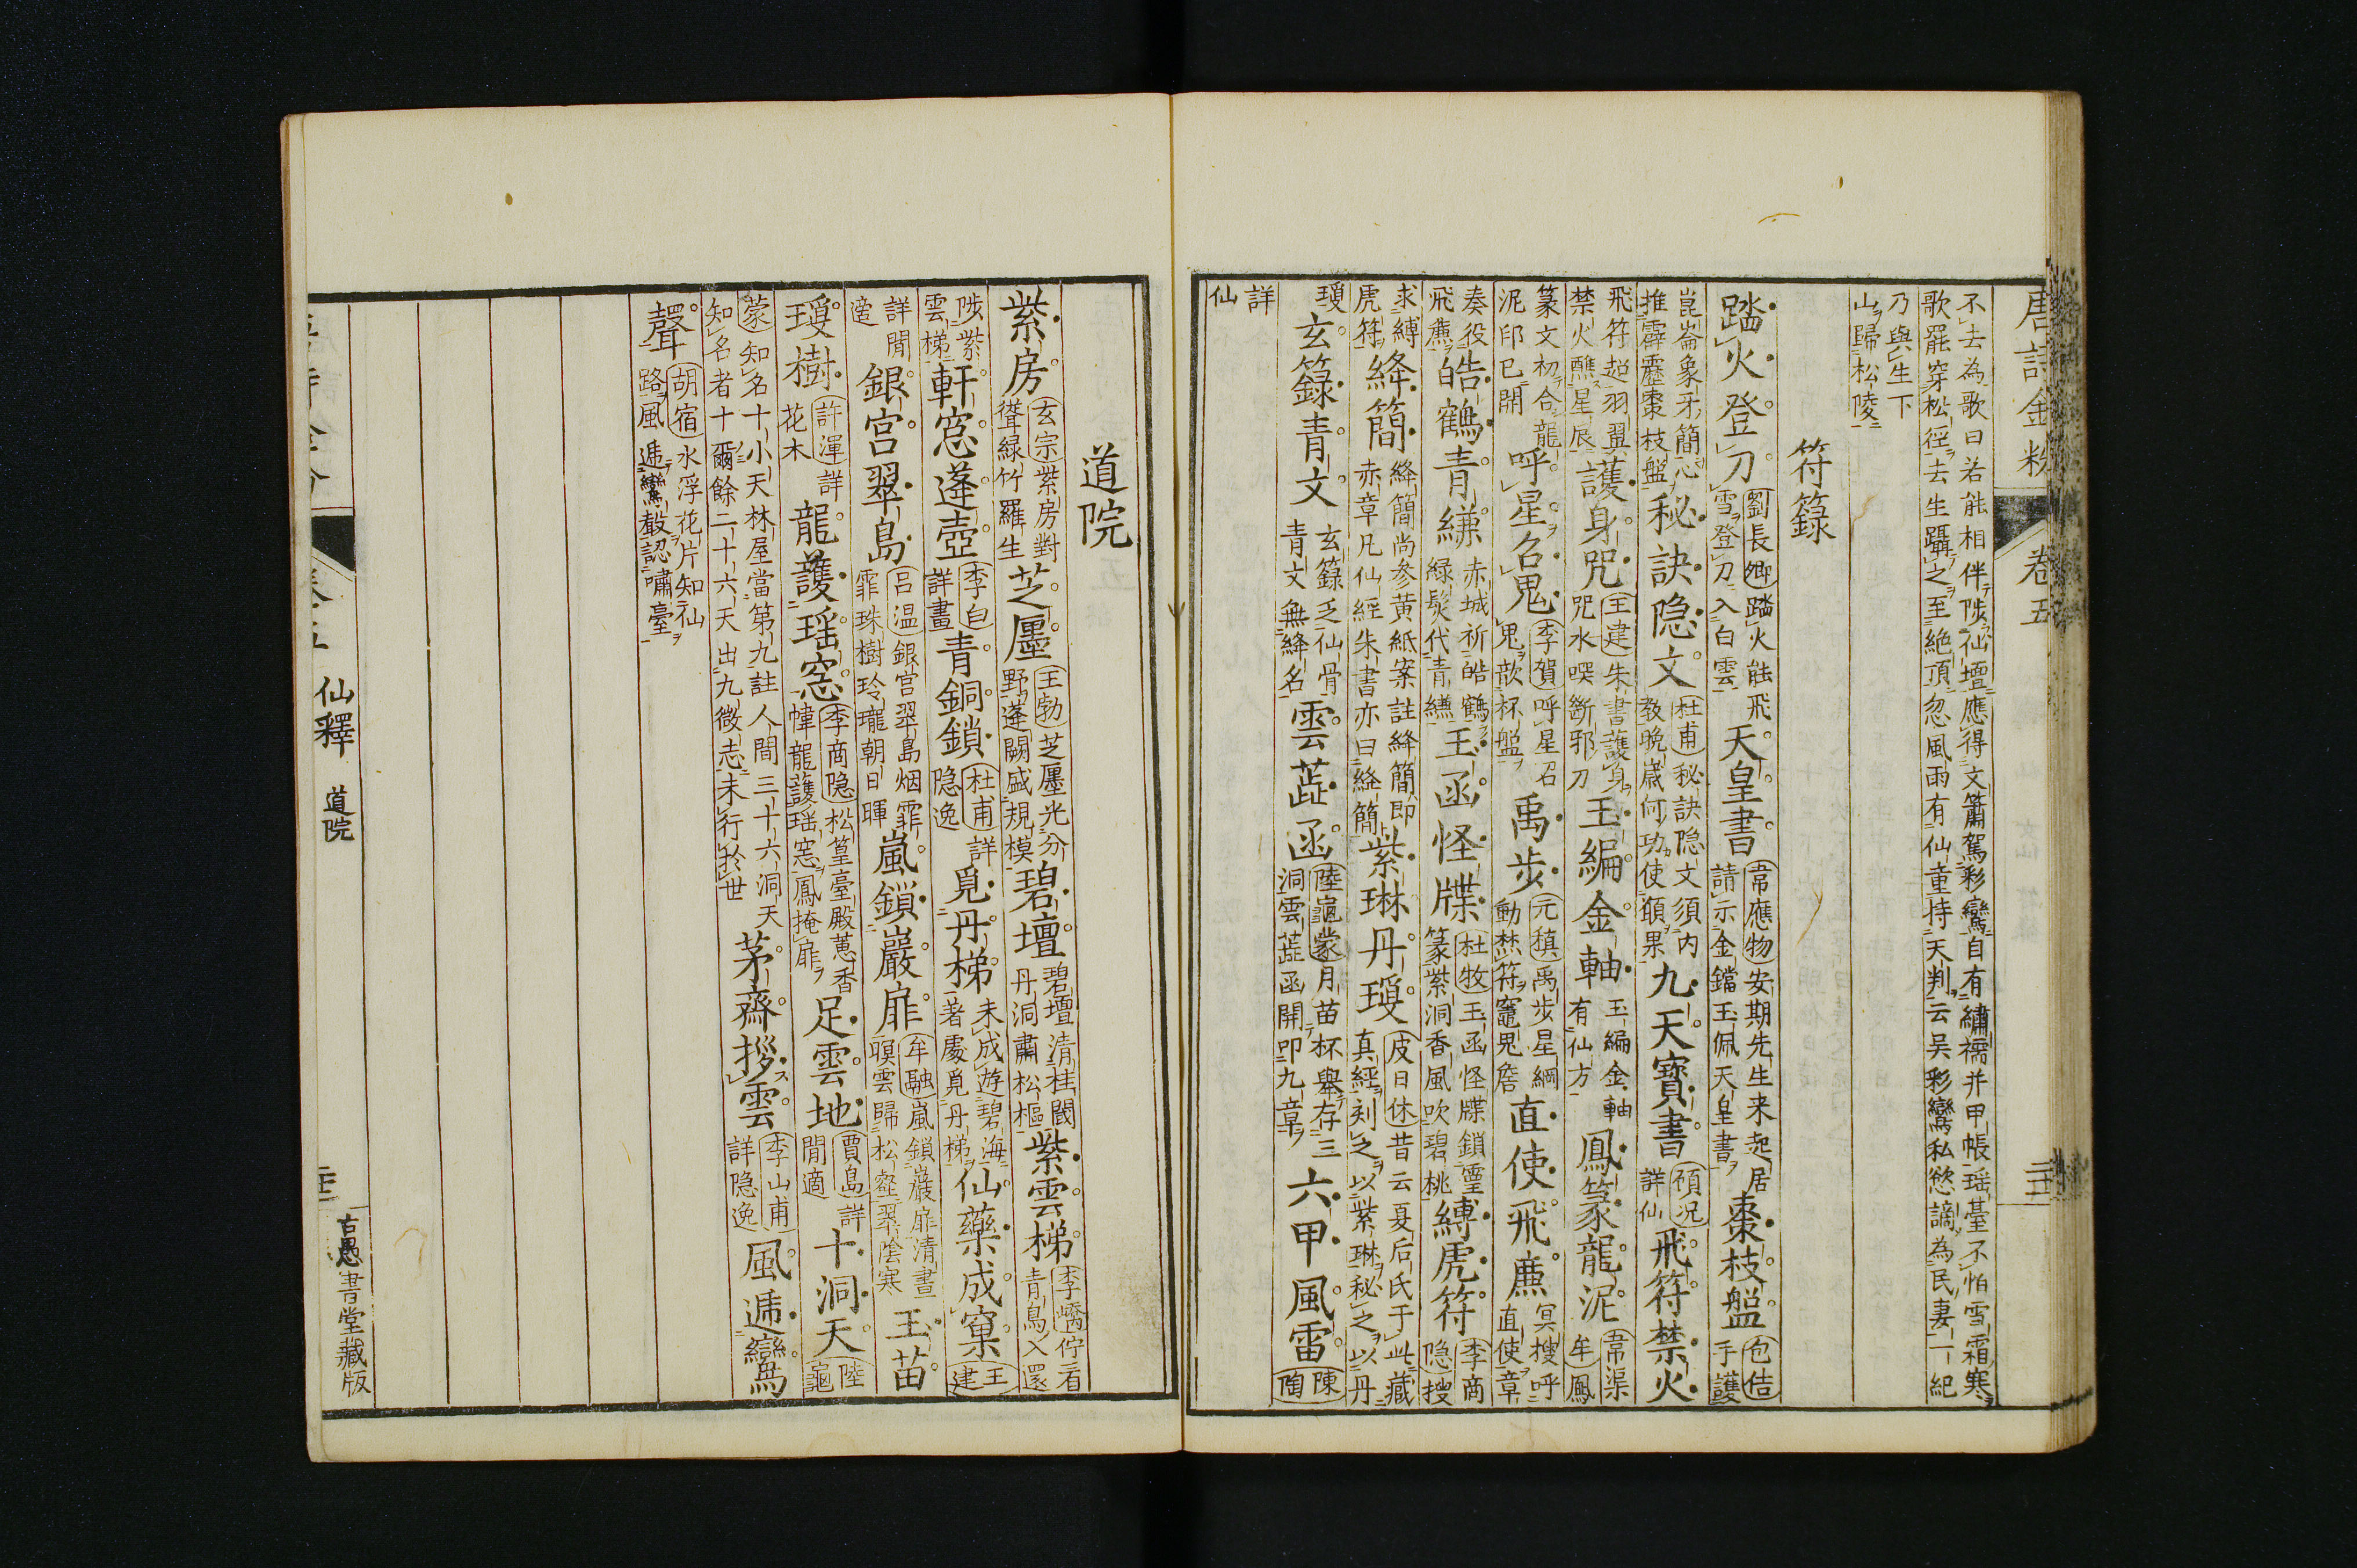 唐詩金粉 卷五
不去為歌曰若能相伴陟仙壇應得文簫駕彩鸞自有繡襦并甲帳瑶臺不怕雪霜寒
歌罷穿松徑去生躡之至絶頂忽風雨有仙童持天判云吴彩鸞私慾謫為民妻一紀
乃與生下
山歸松陵
符籙
踏火登刀 劉長卿踏火能飛雪登刀入白雲 天皇書 韋應物安期先生来起居請示金鐺玉佩天皇書 棗枝盤 包佶手護
崑崙象牙簡心推霹靂棗枝盤 秘訣隐文 杜甫秘訣隐文須内教晚歳何功使願果 九天寳書 顧况詳仙 飛符禁火
飛符超羽翼禁火醮星辰 護身咒 王建朱書護身咒水噀斷邪刀 玉編金軸 玉編金軸有仙方 鳳篆龍泥 韋渠牟鳳
篆文初合龍泥印已開 呼星召鬼 李賀呼星召鬼歆杯盤 禹步 元稹禹步星綱動焚符竈鬼詹 直使飛廉 冥搜呼直使章
奏役飛廉 皓鶴青縑 赤城祈皓鶴緑髮代青縑 玉函怪牒 杜牧玉函怪牒鎖靈篆紫洞香風吹碧桃 縛虎符 李商隐搜
求縛虎符 絳簡 絳簡尚参黄紙案註絳簡即赤章凡仙經朱書亦曰絳簡 紫琳丹瓊 皮日休昔云夏后氏于此藏真經刻之以紫琳秘之以丹
瓊 玄籙青文 玄籙乏仙骨青文無絳名 雲蕋函 陸龜蒙月苗杯舉存三洞雲蕋函開叩九章 六甲風雷 陳陶
詳
仙
道院
紫房 玄宗紫房對聳緑竹羅生 芝廛 王勃芝廛光分野蓬闕盛規模 碧壇 碧壇清桂閾丹洞肅松樞 紫雲梯 李嶠佇看青鳥入還
陟紫雲梯 軒窓蓬壺 李白詳畫 青銅鎖 杜甫詳隐逸 覓丹梯 未成遊碧海著處覓丹梯 仙藥成窠 王建
詳閒適 銀宫翠島 吕温銀宫翠島烟霏霏珠樹玲瓏朝日暉 嵐鎖巖扉 牟融嵐鎖巖扉清晝暝雲歸松壑翠陰寒 玉苗
瓊樹 許渾詳花木 龍護瑶窓 李商隐松篁臺殿蕙香幃龍護瑶窓鳳掩扉 足雲地 賈島詳閒適 十洞天 陸龜
蒙知名十小天林屋當第九註人間三十六洞天知名者十爾餘二十六天出九微志未行於世 茅齋拶雲 李山甫詳隐逸 風逓鸞
聲 胡宿水浮花片知仙路風逓鸞聲認嘯臺
仙釋 道院
古愚書堂藏版